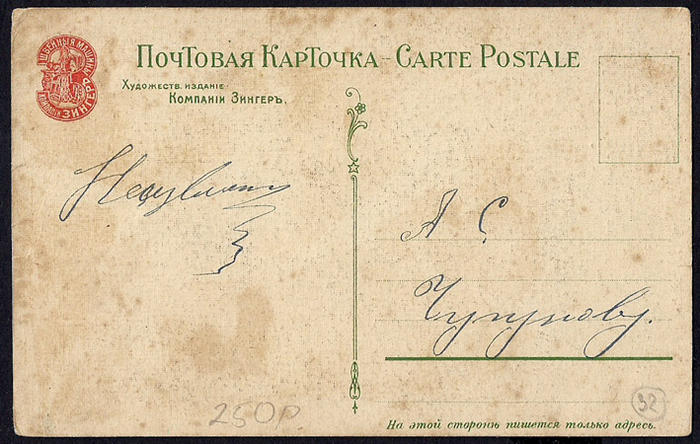 ШВЕЙНЫЯ МАШИНЫ
КОМПАНІИ ЗИНГЕРЪ
ПОЧТОВАЯ КАРТОЧКА – CARTE POSTALE
ХУДОЖЕСТВ. ИЗДАНІЕ
КОМПАНІИ ЗИНГЕРЪ.
А С
Чугунову.
250р.
92
На этой сторонѣ пишется только адресъ.